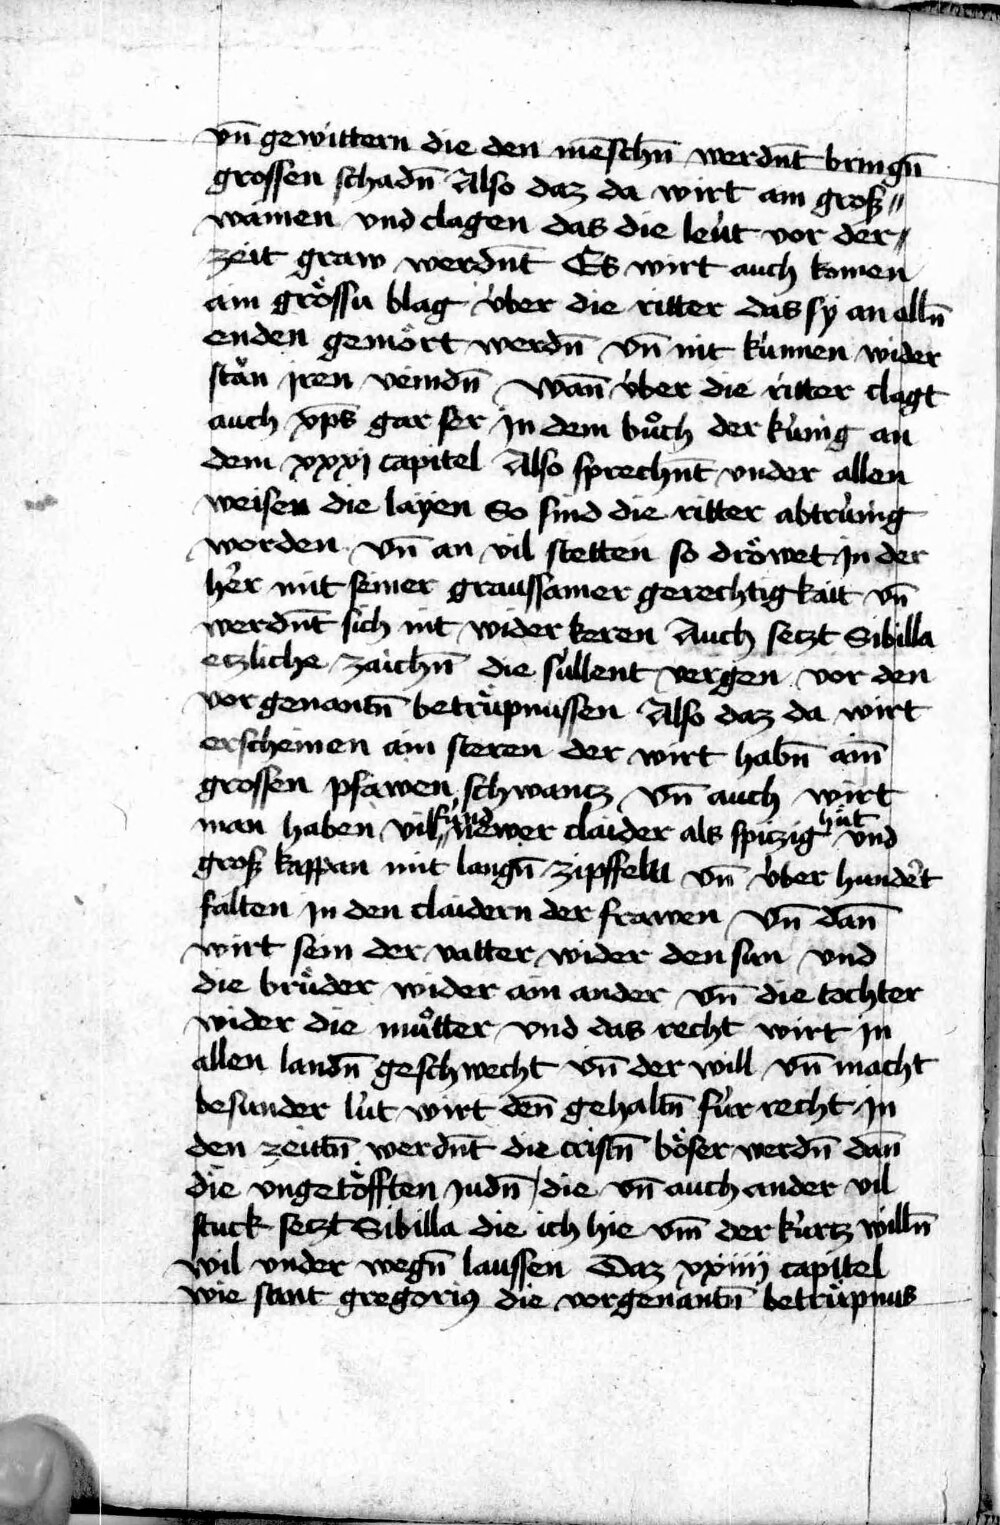 vn̄ gewittern die den mēschn̄ werdn̄t bringn̄
grossen schadn̄ Also daz da wirt am groſz〃
wainen vnd clagen das die leu̇t vor der〃
zeit graw werdn̄t Es wirt auch komen
ain grössu blag v̇ber die ritter das sy an alln̄
enden gemört werdn̄ Vn̄ nit ku̇nnen wider
stän iren veindn̄ Wan̄ v̇ber die ritter clagt
auch xp̄s gar ser in dem bůch der ku̇nig an
dem xxxi capitel Also sprechn̄t vnder allen
weisen die layen So sind die ritter abtru̇nig
worden Vn̄ an vil stetten so dröwet in der
her mit seiner graussamer gerechtigkait Vn̄
werdn̄t sich nit wider keren Auch setzt Sibilla
etzliche zaichn̄ die su̇llent vergen vor den
vorgenantn̄ betrüpnussen Also daz da wirt
erscheinen ain steren der wirt habn̄ ain̄
grossen pfawen schwantz Vn̄ auch wirt
man haben vil fünd newer claider als spitzig hüt vnd
groſz kappan mit langn̄ zipffeln Vn̄ v̇ber hundert
falten in den claidern der frawen Vn̄ dan̄
wirt sein der vatter wider den sun vnd
die brüder wider ain ander Vn̄ die tochter
wider die můtter vnd das recht wirt in
allen landn̄ geschwecht Vn̄ der will Vn̄ macht
besunder lu̇t wirt den̄ gehaltn̄ fu̇r recht in
den zeittn̄ werdn̄t die cristn̄ böser werdn̄ dan̄
die vngetöfften iudn̄ / die Vn̄ auch ander vil
stuck setzt Sibilla die ich hie vm̄ der ku̇rtz willn̄
wil vnder wegn̄ laussen Daz xxiiii capitel
wie sant gregorius die vorgenantn̄ betrüpnus